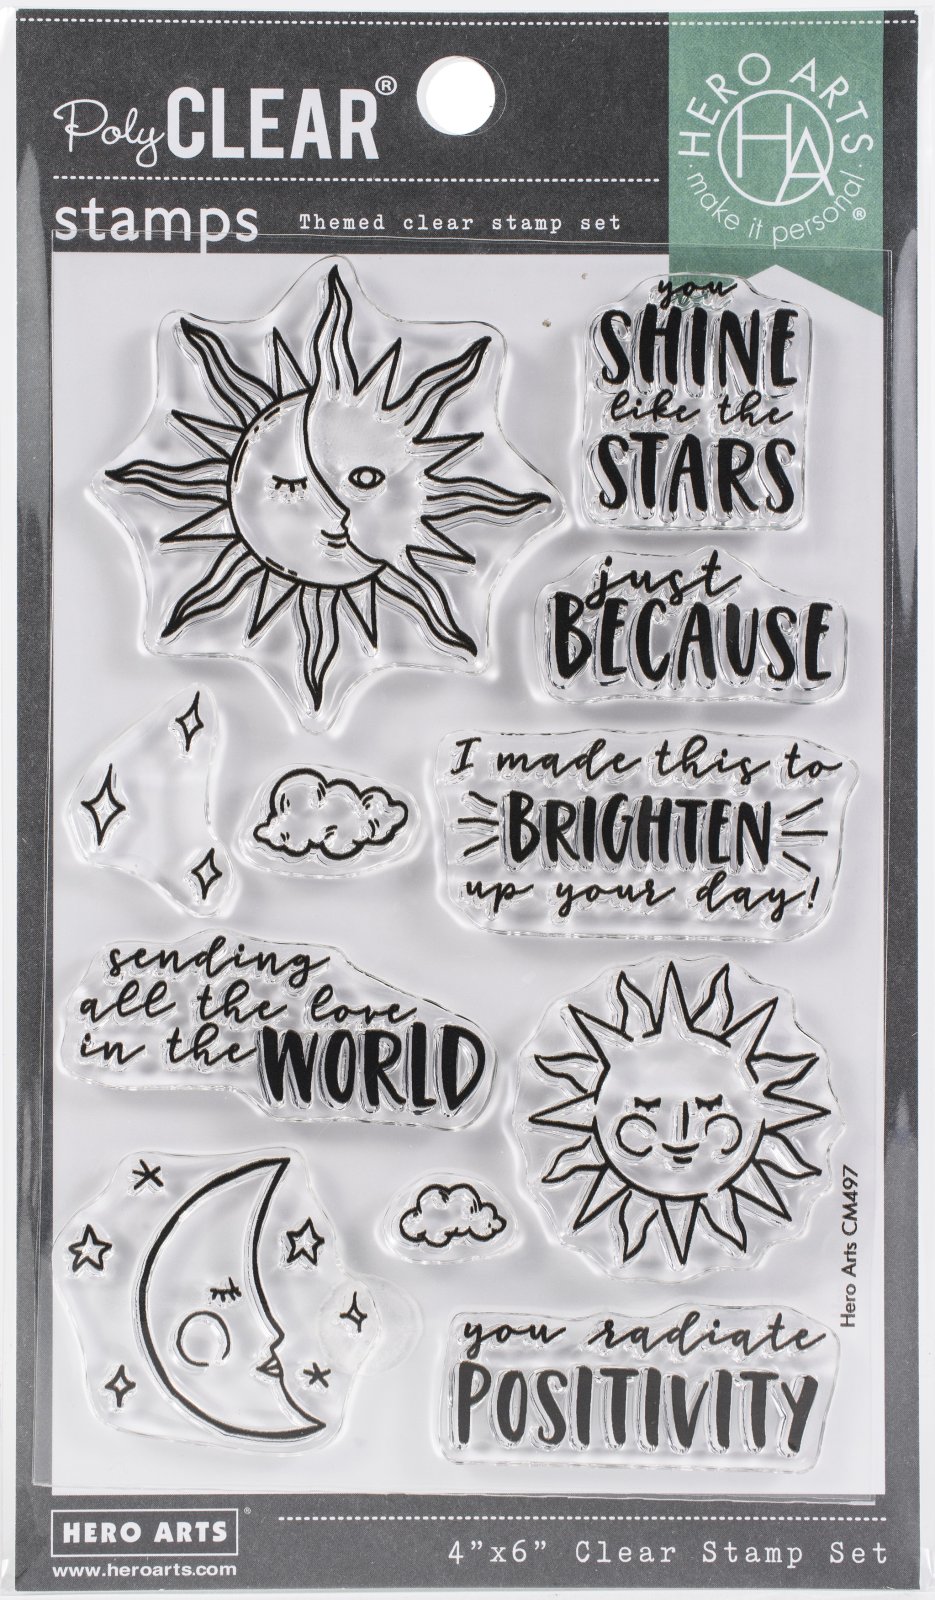 Poly CLEAR®
stamps Themed clear stamp set
HERO ARTS
HA
make it personal®
you
SHINE
like the
STARS
just
BECAUSE
I made this to
BRIGHTEN
up your day!
sending
all the love
in the WORLD
Hero Arts CM497
you radiate
POSITIVITY
HERO ARTS®
www.heroarts.com
4”x6” Clear Stamp Set